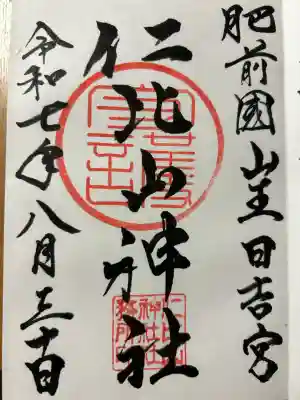 肥前國山王日吉宮
仁比山神社
令和七年八月三十日
仁比山
神社社
務所印